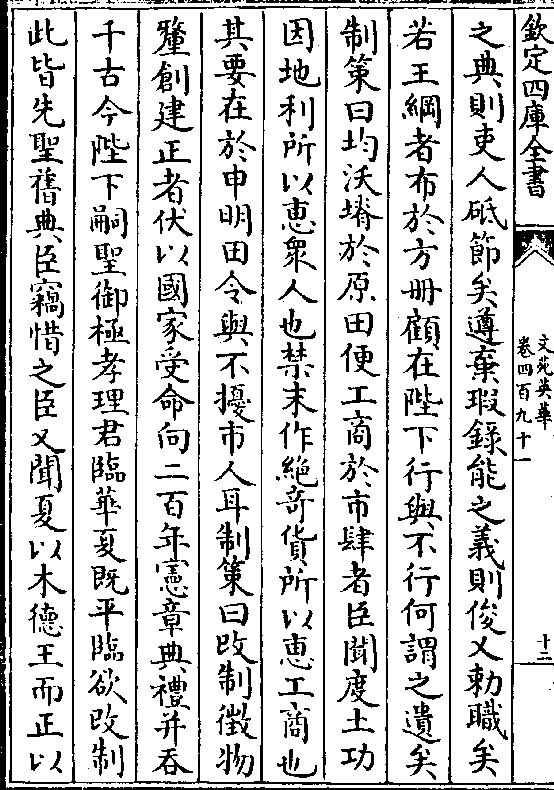 欽定四庫全書
文苑英華
卷四百九十一
十二
之典則吏人砥節矣遵棄瑕錄能之義則俊乂勅職矣
若王綱者布於方册顧在陛下行與不行何謂之遺矣
制策曰均沃塉於原田便工商於市肆者臣聞度土功
因地利所以惠衆人也禁末作絶奇貨所以惠工商也
其要在於申明田令與不擾市人耳制策曰改制徵物
釐創建正者伏以國家受命向二百年憲章典禮并吞
千古今陛下嗣聖御極孝理君臨華夏既平臨欲改制
此皆先聖舊典臣竊惜之臣又聞夏以木德王而正以